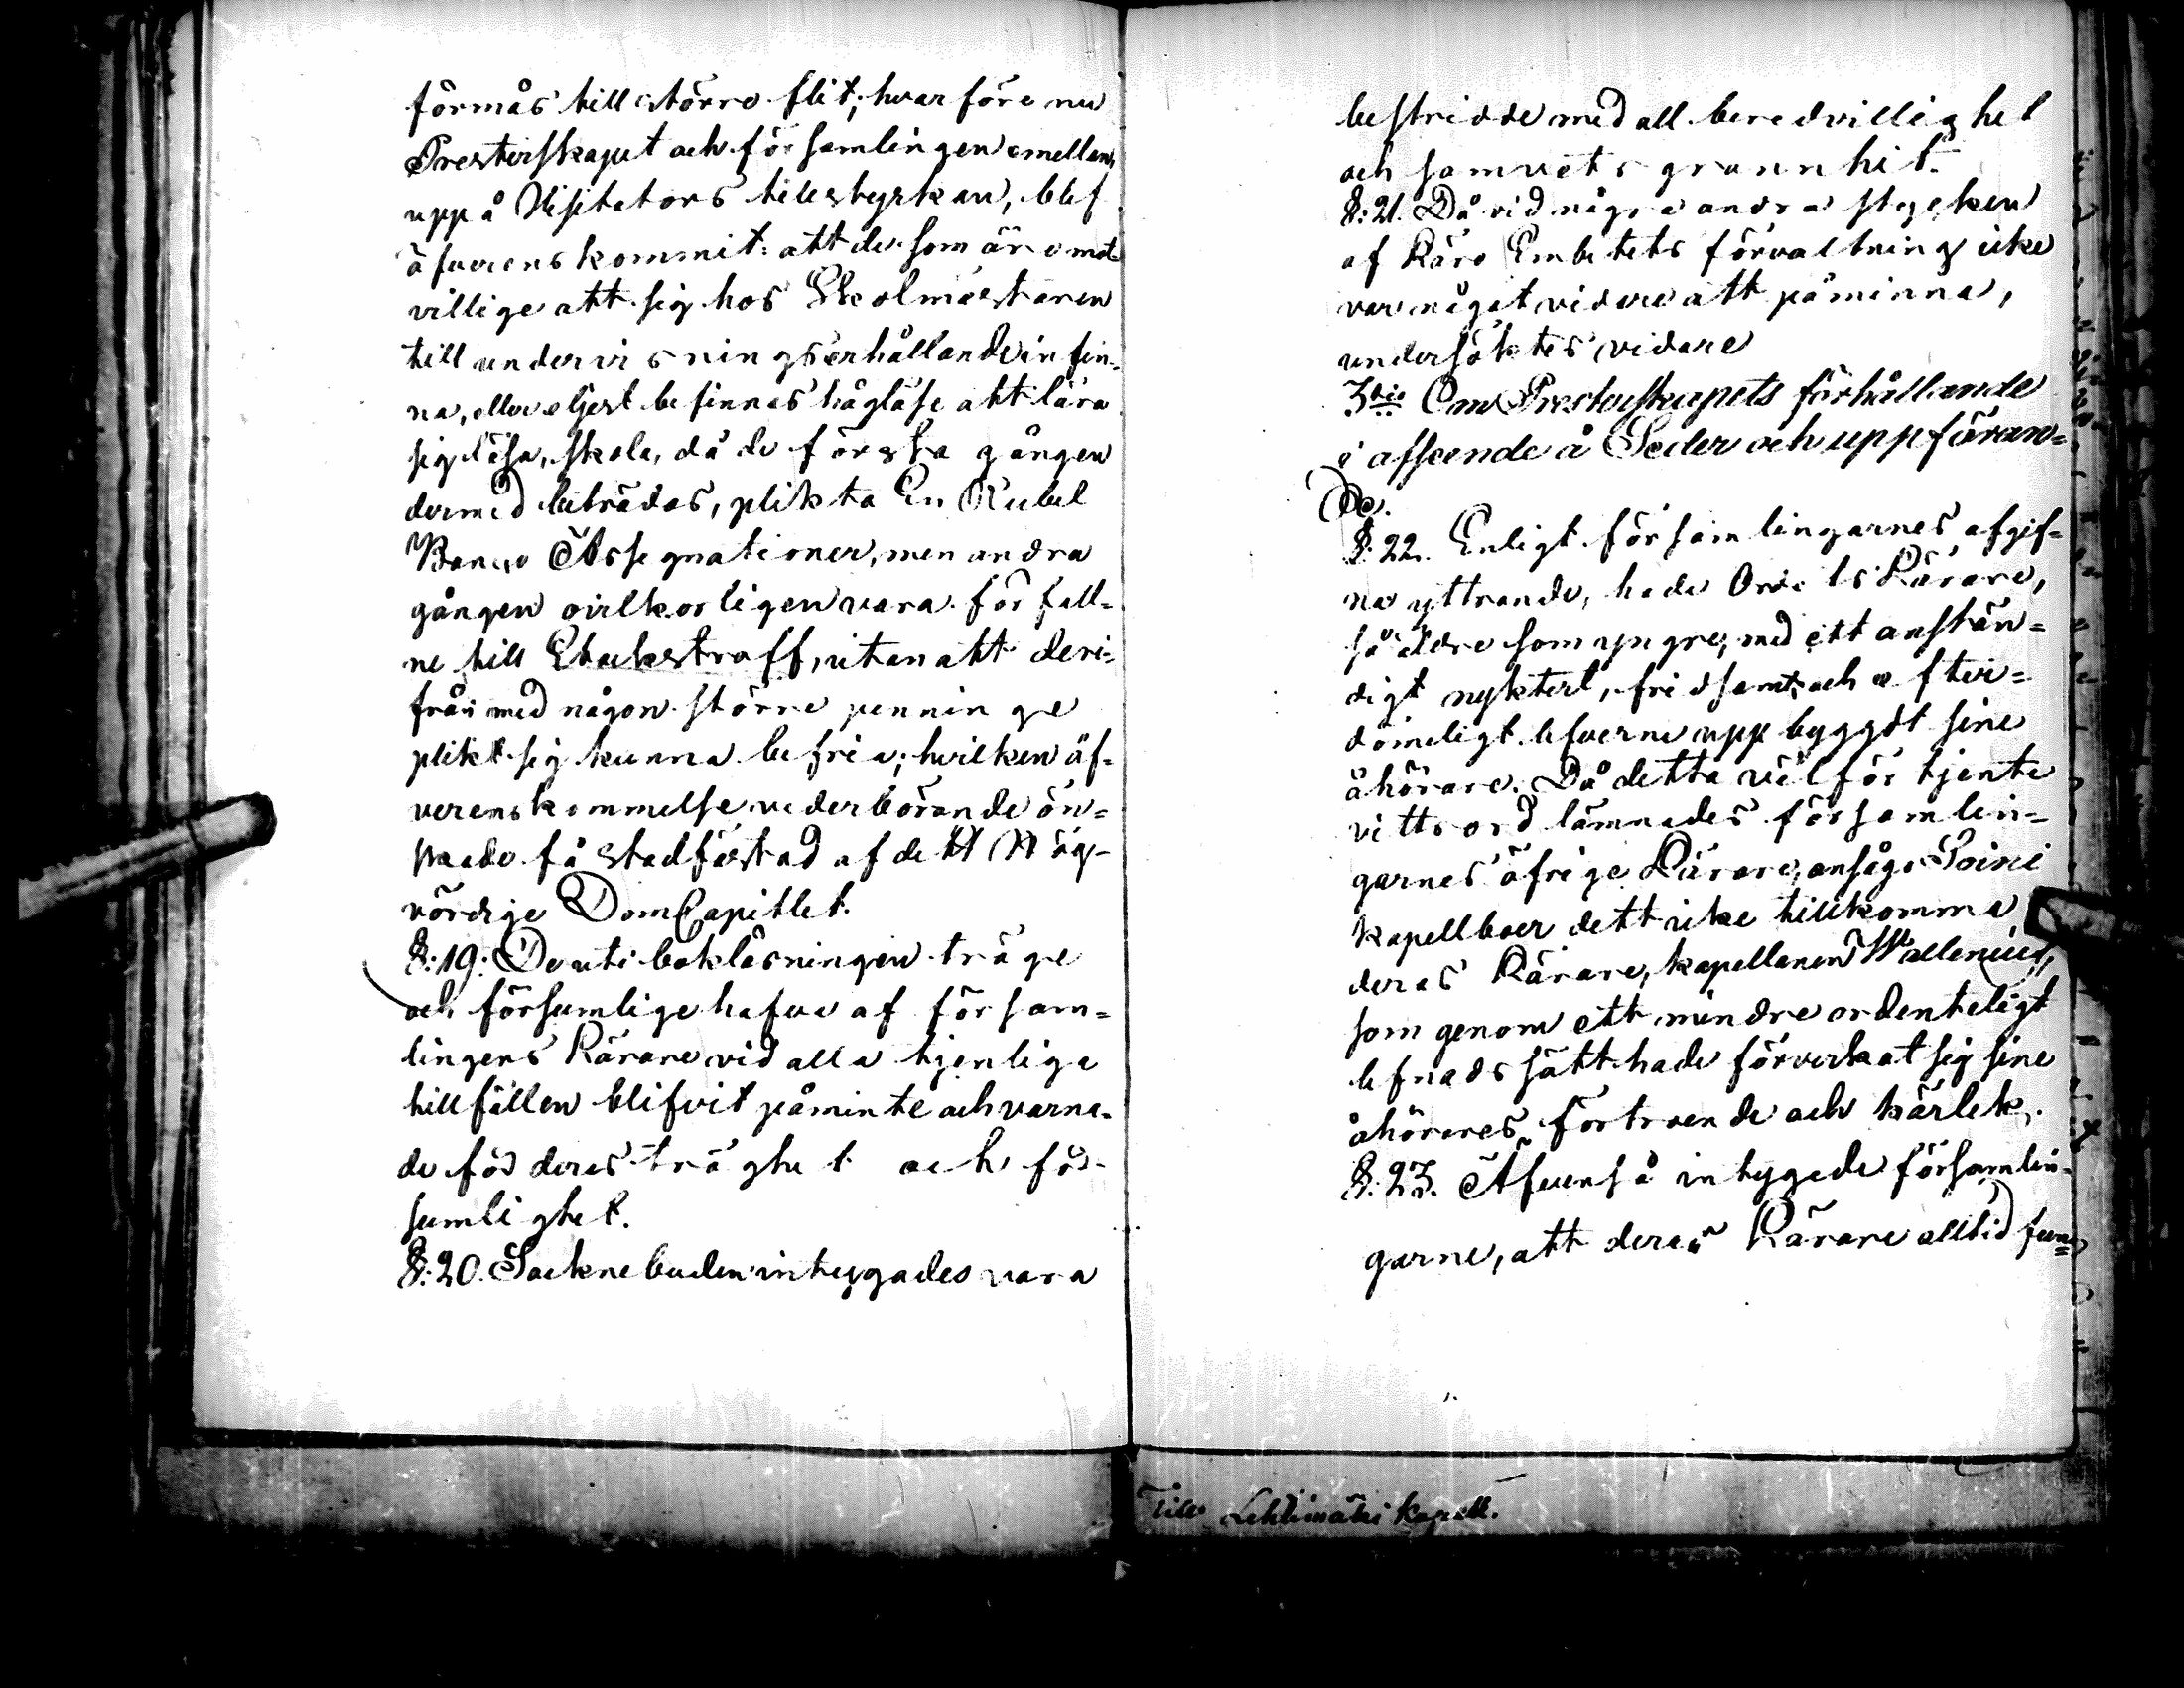 förmås till större flit; hvarföre nu
Presterskapet och församlingen emellan,
uppå Visitators tillstyrkan, blef
öfverenskommit: att de som äro mot-
villige att sig hos Skolmästaren
till undervisnings erhållande infin-
na, eller eljest befinnas håglöse att lära
sig läsa, skola, då de första gången
dermed beträdas, plikta En Rubel
Banco Assignationer, men andra
gången ovilkorligen vara förfall-
ne till Stockstraff, utan att deri-
från med någon större penninge
plikt sig kunna befria; hvilken öf-
verenskommelse vederbörande ön-
skade få stadfästad af dett Hög-
vördige DomCapitlet.
§:19: De uti bokläsningen tröge
och försumlige hafva af försam-
lingens Lärare vid alla tjenlige
tillfällen blifvit påminte och varna-
de för deras tröghet och för-
sumlighet.
§:20. Socknebuden intygades vara
bestridde med all beredvillighet
och samvets grannhet.
§:21. Då vid några andra stycken
af Läro Embetets förvaltning icke
var något vidare att påminna,
undersöktes vidare
3tio Om Presterskapets förhållande
i afseende å Seder och uppföran=
de.
§:22. Enligt församlingarnes afgif=
na yttrande, hade Ordets Lärare,
så äldre som yngre, med ett anstän=
digt nyktert, fridsamt och efter=
dömeligt lefverne uppbyggdt sine
åhörare. Då detta väl förtjente
vittsord lämnades församlin=
garnes öfrige Lärare, ansågo Soini
kapellboer dett icke tillkomma
deras Lärare, kapellanen Wallenius,
som genom ett mindre ordenteligt
lefnadssätt hade förverkat sig sine
åhörares förtroende och kärlek.
§:23. Äfvenså intygade församlin-
garne, att deras Lärare alltid fun=
Till Lehtimäki Kapell.